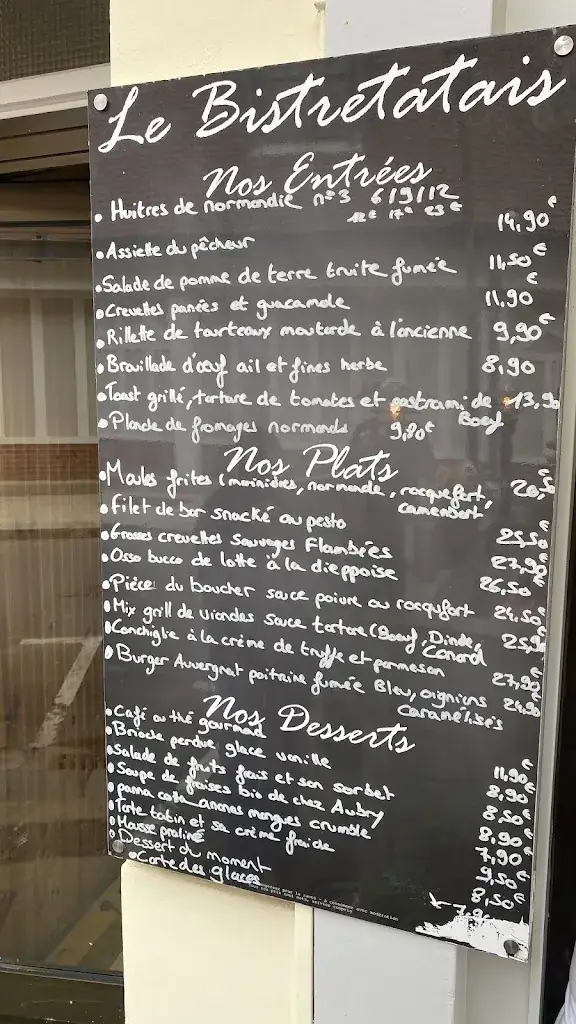 Le Bistretatais
Nos Entrées
• Huitres de normandie n°3 6/9/12
12€ 17€ 23€
• Assiette du pêcheur 14,90€
• Salade de pomme de terre truite fumée 11,50€
• Crevettes panées et guacamole 11,90€
• Rillette de tourteaux moutarde à l'ancienne 9,90€
• Brouillade d'oeuf ail et fines herbe 8,90
• Toast grillé, tartare de tomates et pastrami de 13,90
Boeuf
• Planche de fromages normands 9,80€
Nos Plats
• Moules frites (marinières, normande, roquefort, 20,50€
camembert
• Filet de bar snacké au pesto 25,50€
• Grosses crevettes sauvages Flambées 27,90€
• Osso bucco de lotte à la dieppoise 26,50€
• Pièce du boucher sauce poivre ou roquefort 24,50€
• Mix grill de viandes sauce tartare (Boeuf, Dinde, 25,90€
Canard
• Conchiglie à la crème de truffe et parmesan 27,90€
• Burger Auvergnat poitrine fumée Bleu, oignons 24,90€
Caramélisés
Nos Desserts
• Café ou thé gourmand 11,90€
• Brioche perdue glace vanille 8,90€
• Salade de fruits frais et son sorbet 8,50€
• Soupe de fraises bio de chez Aubry 8,90€
• panna cotta ananas mangues crumble 7,90€
• Tarte tatin et sa crème fraide 9,50€
• Mousse praliné 8,50€
• Dessert du moment
• Carte des glaces